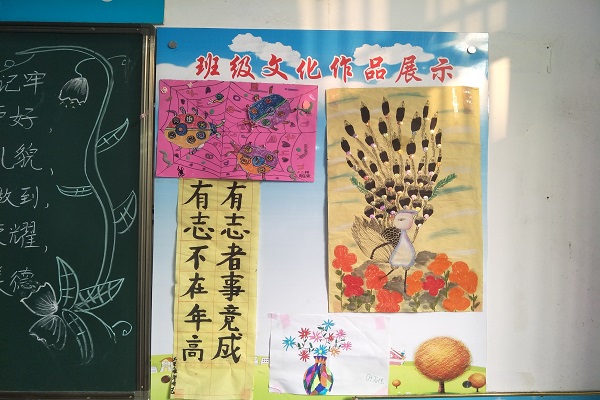 记牢
好，
礼貌，
做到，
耀，
德
班级文化作品展示
有志者事竟成
有志不在年高